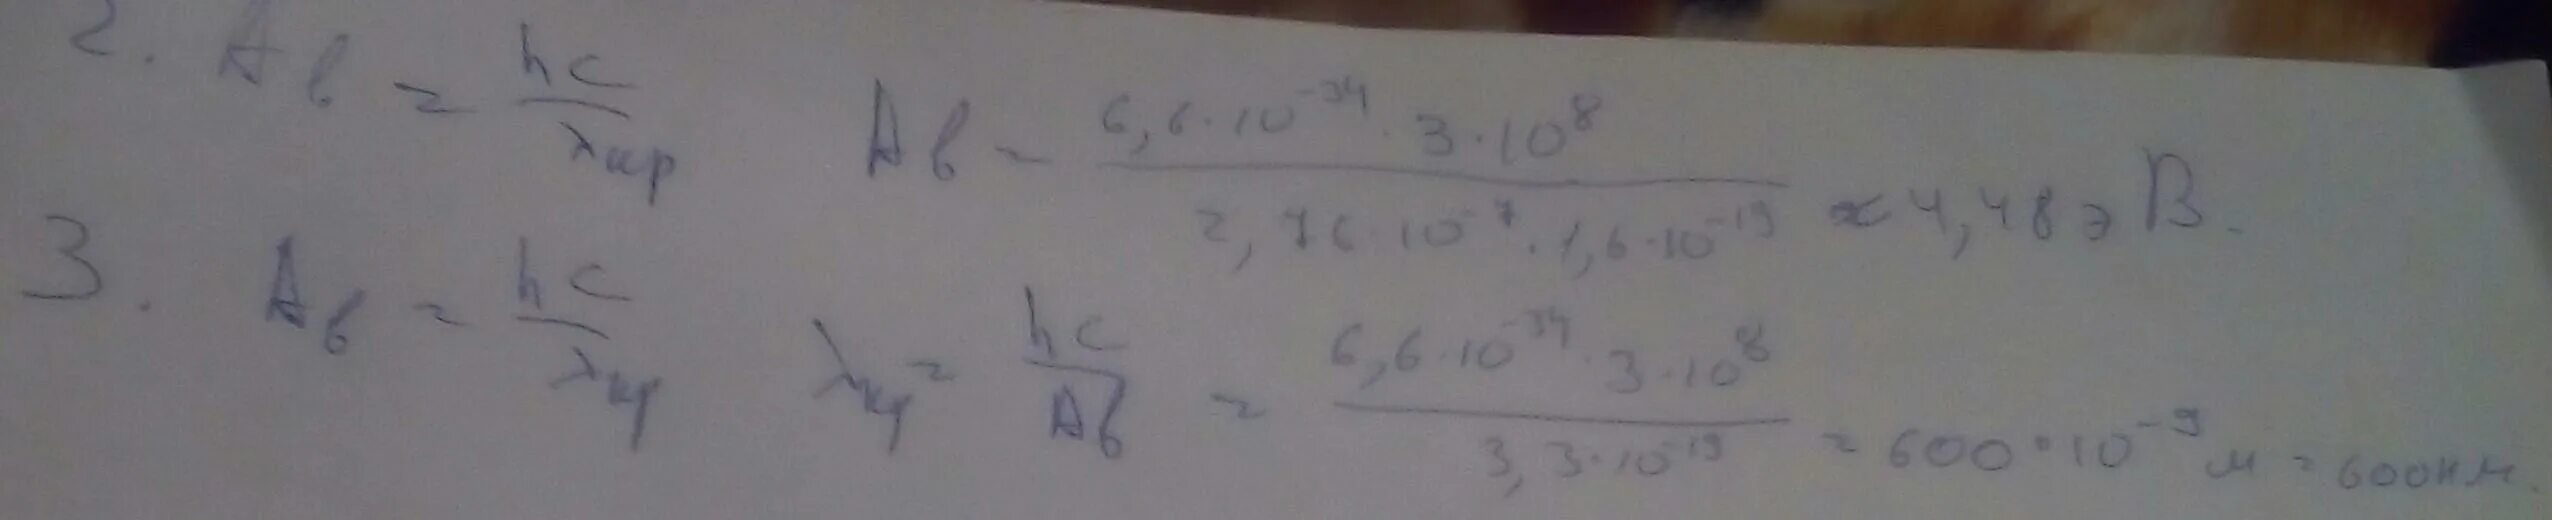 2. Aв = hc/λкр   Aв = 6,6·10⁻³⁴·3·10⁸ / 2,76·10⁻⁷·1,6·10⁻¹⁹ ≈ 4,48 эВ.
3. Aв = hc/λкр   λкр = hc/Aв = 6,6·10⁻³⁴·3·10⁸ / 3,3·10⁻¹⁹ = 600·10⁻⁹ м = 600 нм.